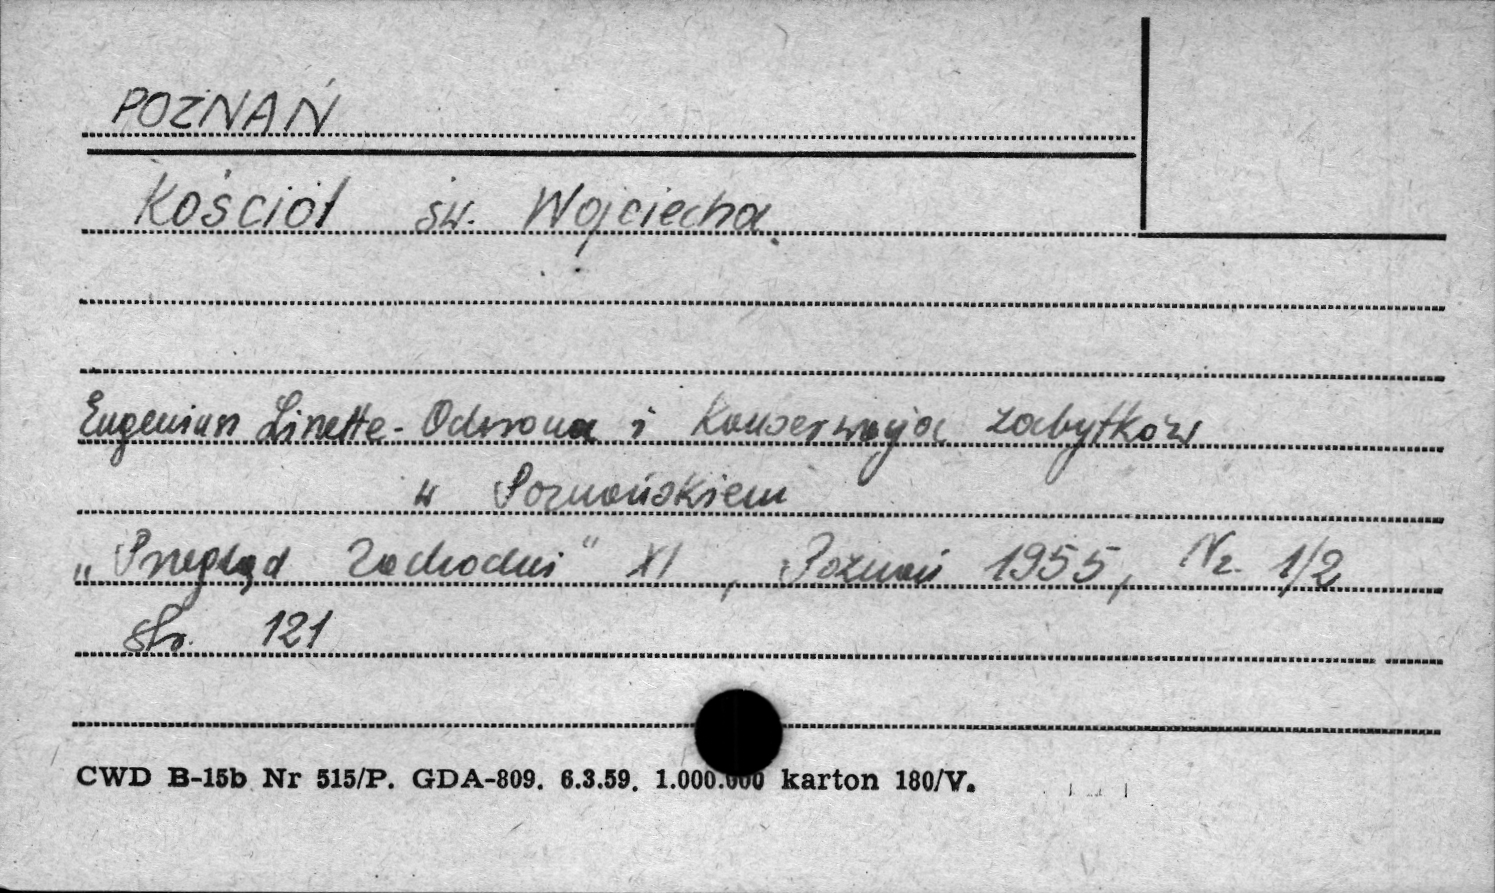 POZNAŃ
Kościół św. Wojciecha
Eugeniusz Linette - Ochrona i Konserwacja zabytków
w Poznańskiem
„Przegląd Zachodni" XI, Poznań 1955, Nr. 1/2
str. 121
CWD B-15b Nr 515/P. GDA-809. 6.3.59. 1.000.000 karton 180/V.